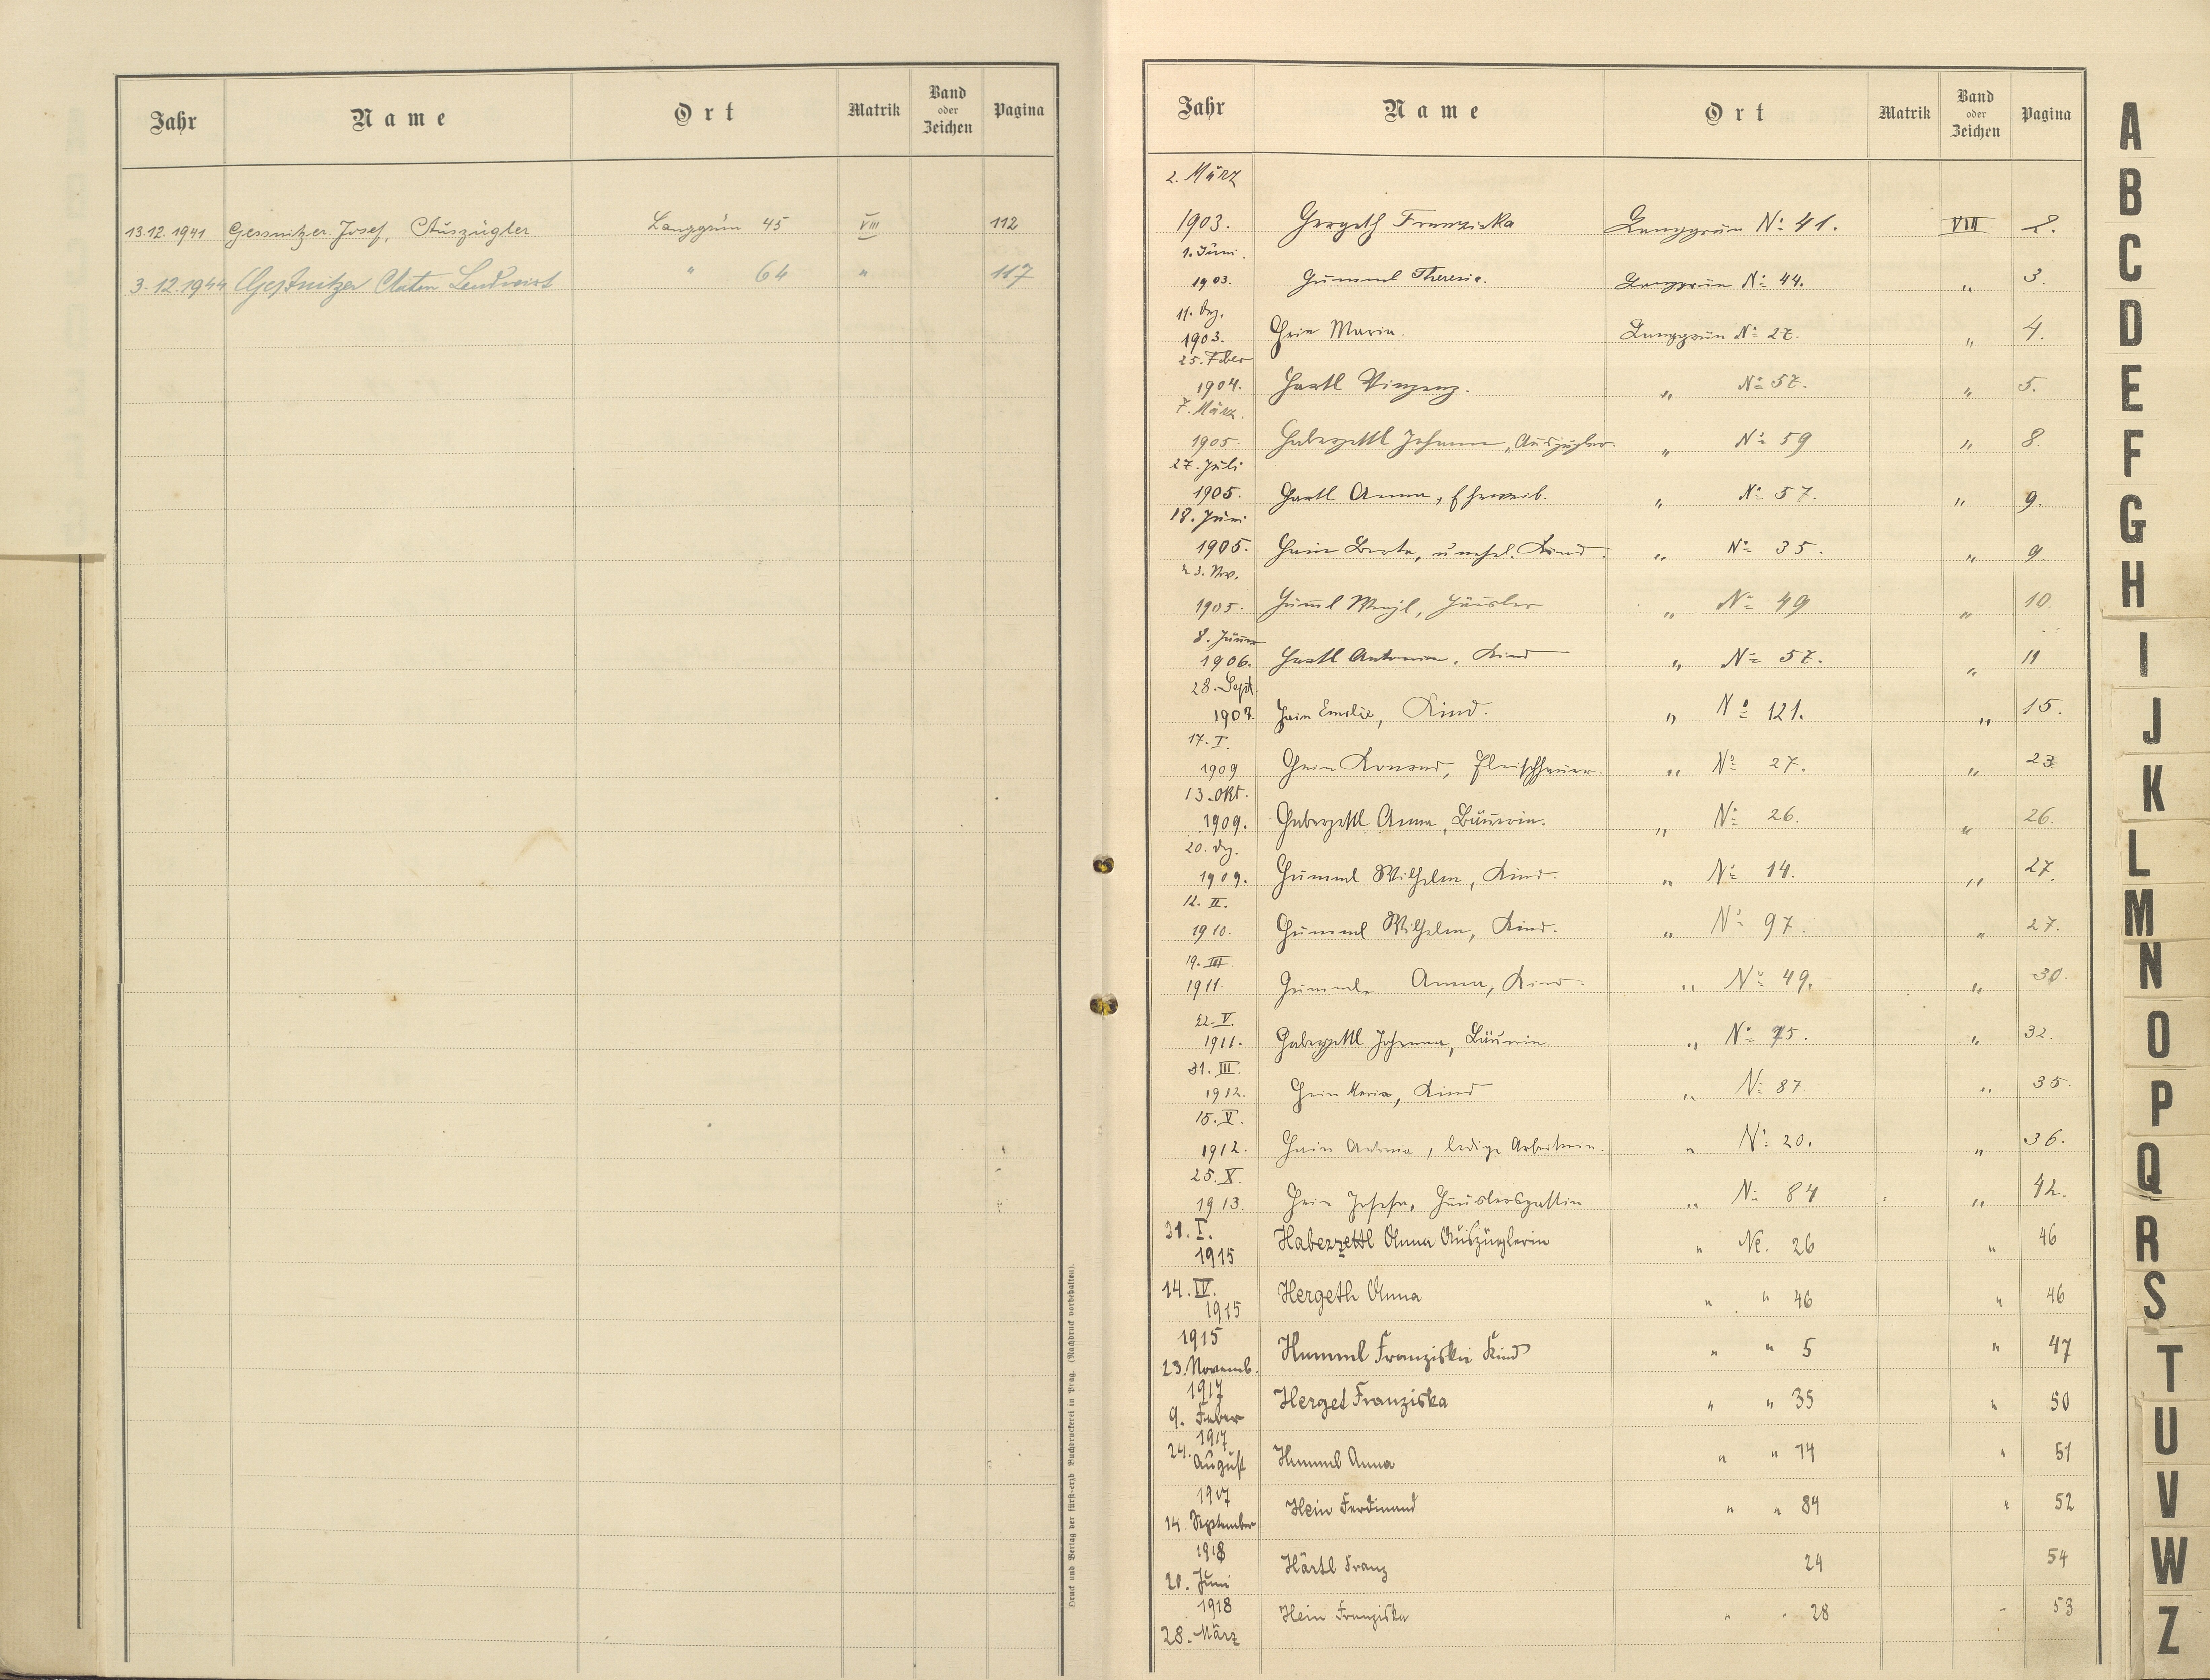 Jahr Name Ort Matrik Band oder Zeichen Pagina
13.12.1941 Gessnitzer Josef, Auszügler Langgrün 45 VIII 112
3.12.1944 Gessnitzer Anton Landwirt " 64 " 117
Druck und Verlag der fürst-erzb. Buchdruckerei in Prag. (Nachdruck vorbehalten).
Jahr Name Ort Matrik Band oder Zeichen Pagina
2. März
1903. Hergeth Franziska Langgrün No 41. VIII 2.
1. Juni.
1903. Hummel Theresia. Langgrün No 44. " 3.
11. Dez.
1903. Hein Maria. Langgrün No 27. " 4.
25. Feber
1904. Hartl Vinzenz. " No 57. " 5.
7. März.
1905. Haberzettl Johann, Auszügler. " No 59 " 8.
27. Juli
1905. Hartl Anna, Eheweib. " No 57. " 9.
18. Juni
1905. Hein Berta, unehel. Kind. " No 35. " 9.
23. Nov.
1905. Huml̄ Wenzl, Häusler " No 49 " 10.
8. Jänner
1906. Hartl Antonia, Kind " No 57. " 11
28. Sept.
1907. Hein Emilie, Kind. " No 121. " 15.
17. I.
1909 Hein Konrad, Fleischhauer. " No 27. " 23.
13. Okt.
1909. Haberzettl Anna, Bäuerin. " No 26. " 26.
20. Dez.
1909. Hummel Wilhelm, Kind. " No 14. " 27.
12. II.
1910. Hummel Wilhelm, Kind. " No 97. " 27.
19. III.
1911. Hummel Anna, Kind. " No 49. " 30.
22. V.
1911. Haberzettl Johanna, Bäuerin. " No 95. " 32.
31. III.
1912. Hein Maria, Kind " No 87. " 35.
15. V.
1912. Hein Antonia, ledige Arbeiterin. " No 20. " 36.
25. X.
1913. Hein Josefa, Häuslersgattin " No 84 " 42.
31. I.
1915 Haberzettl Anna Auszüglerin " No. 26 " 46
14. IV.
1915 Hergeth Anna " " 46 " 46
1915
23. Novemb. Hummel Franziska Kind " " 5 " 47
1917
9. Feber Herget Franziska " " 35 " 50
1917
24. August Hummel Anna " " 14 " 51
1917
14. September Hein Ferdinand " " 84 " 52
1918
20. Juni Härtl Franz 24 54
1918
28. März Hein Franziska " " 28 " 53
A
B
C
D
E
F
G
H
I
J
K
L
M
N
O
P
Q
R
S
T
U
V
W
Z